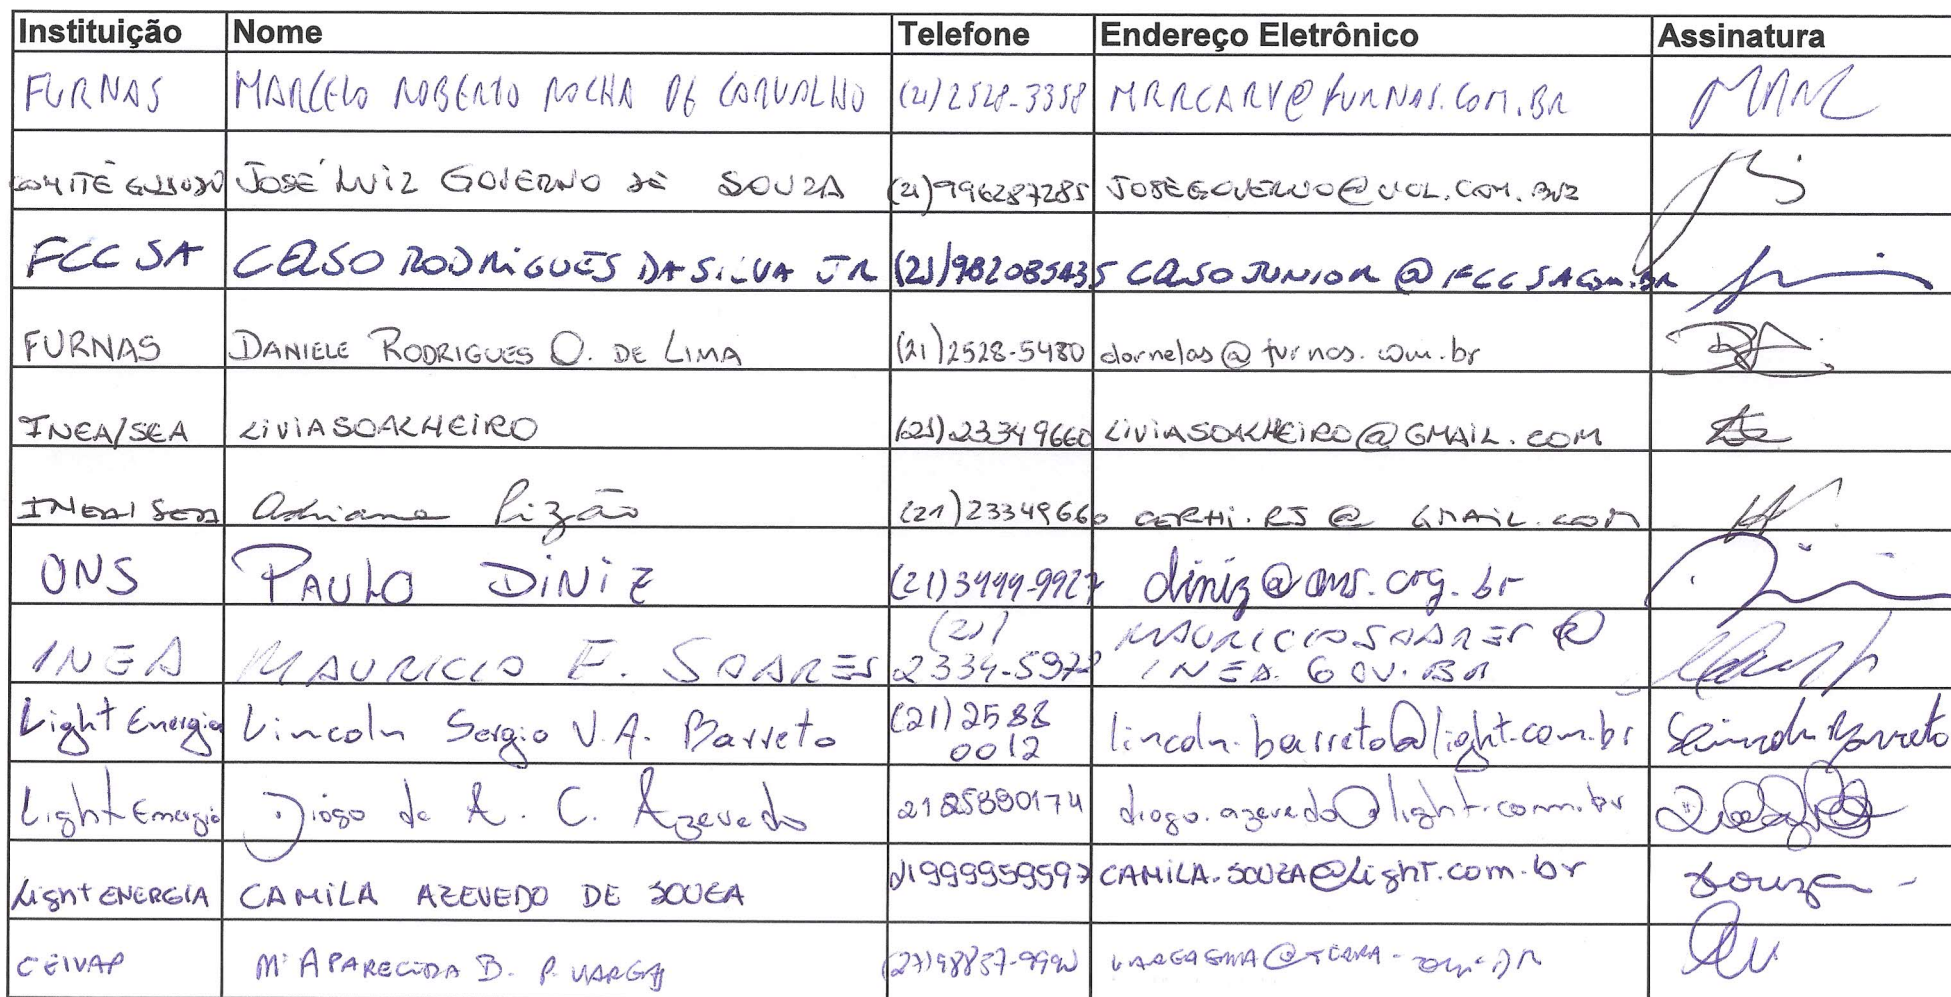 Instituição Nome Telefone Endereço Eletrônico Assinatura
FURNAS MARCELO ROBERTO ROCHA DE CARVALHO (21)2528-3358 MRRCARV@FURNAS.COM.BR
COMITÊ JOSÉ LUIZ GOVERNO DE SOUZA (21)996287285 JOSEGOVERNO@UOL.COM.BR
FCC SA CELSO RODRIGUES DA SILVA JR (21)982085435 CELSOJUNIOR@FCCSA.COM.BR
FURNAS DANIELE RODRIGUES O. DE LIMA (21)2528-5480 dornelas@furnas.com.br
INEA/SEA LIVIA SOALHEIRO (21)23349660 LIVIASOALHEIRO@GMAIL.COM
INEA/SEA Adriana (21)23349660 CERHI.RJ@GMAIL.COM
ONS PAULO DINIZ (21)3444-9927 diniz@ons.org.br
INEA MAURICIO E. SOARES (21) 2334-5972 MAURICIOSOARES@
INEA.GOV.BR
Light Energia Lincoln Sergio V.A. Barreto (21)2588
0012 lincoln.barreto@light.com.br Barreto
Light Energia Diogo de A. C. Azevedo diogo.azevedo@light.com.br
Light ENERGIA CAMILA AZEVEDO DE SOUZA 21999959597 CAMILA.SOUZA@Light.com.br Souza
CEIVAP Mª APARECIDA B. P. VARGAS